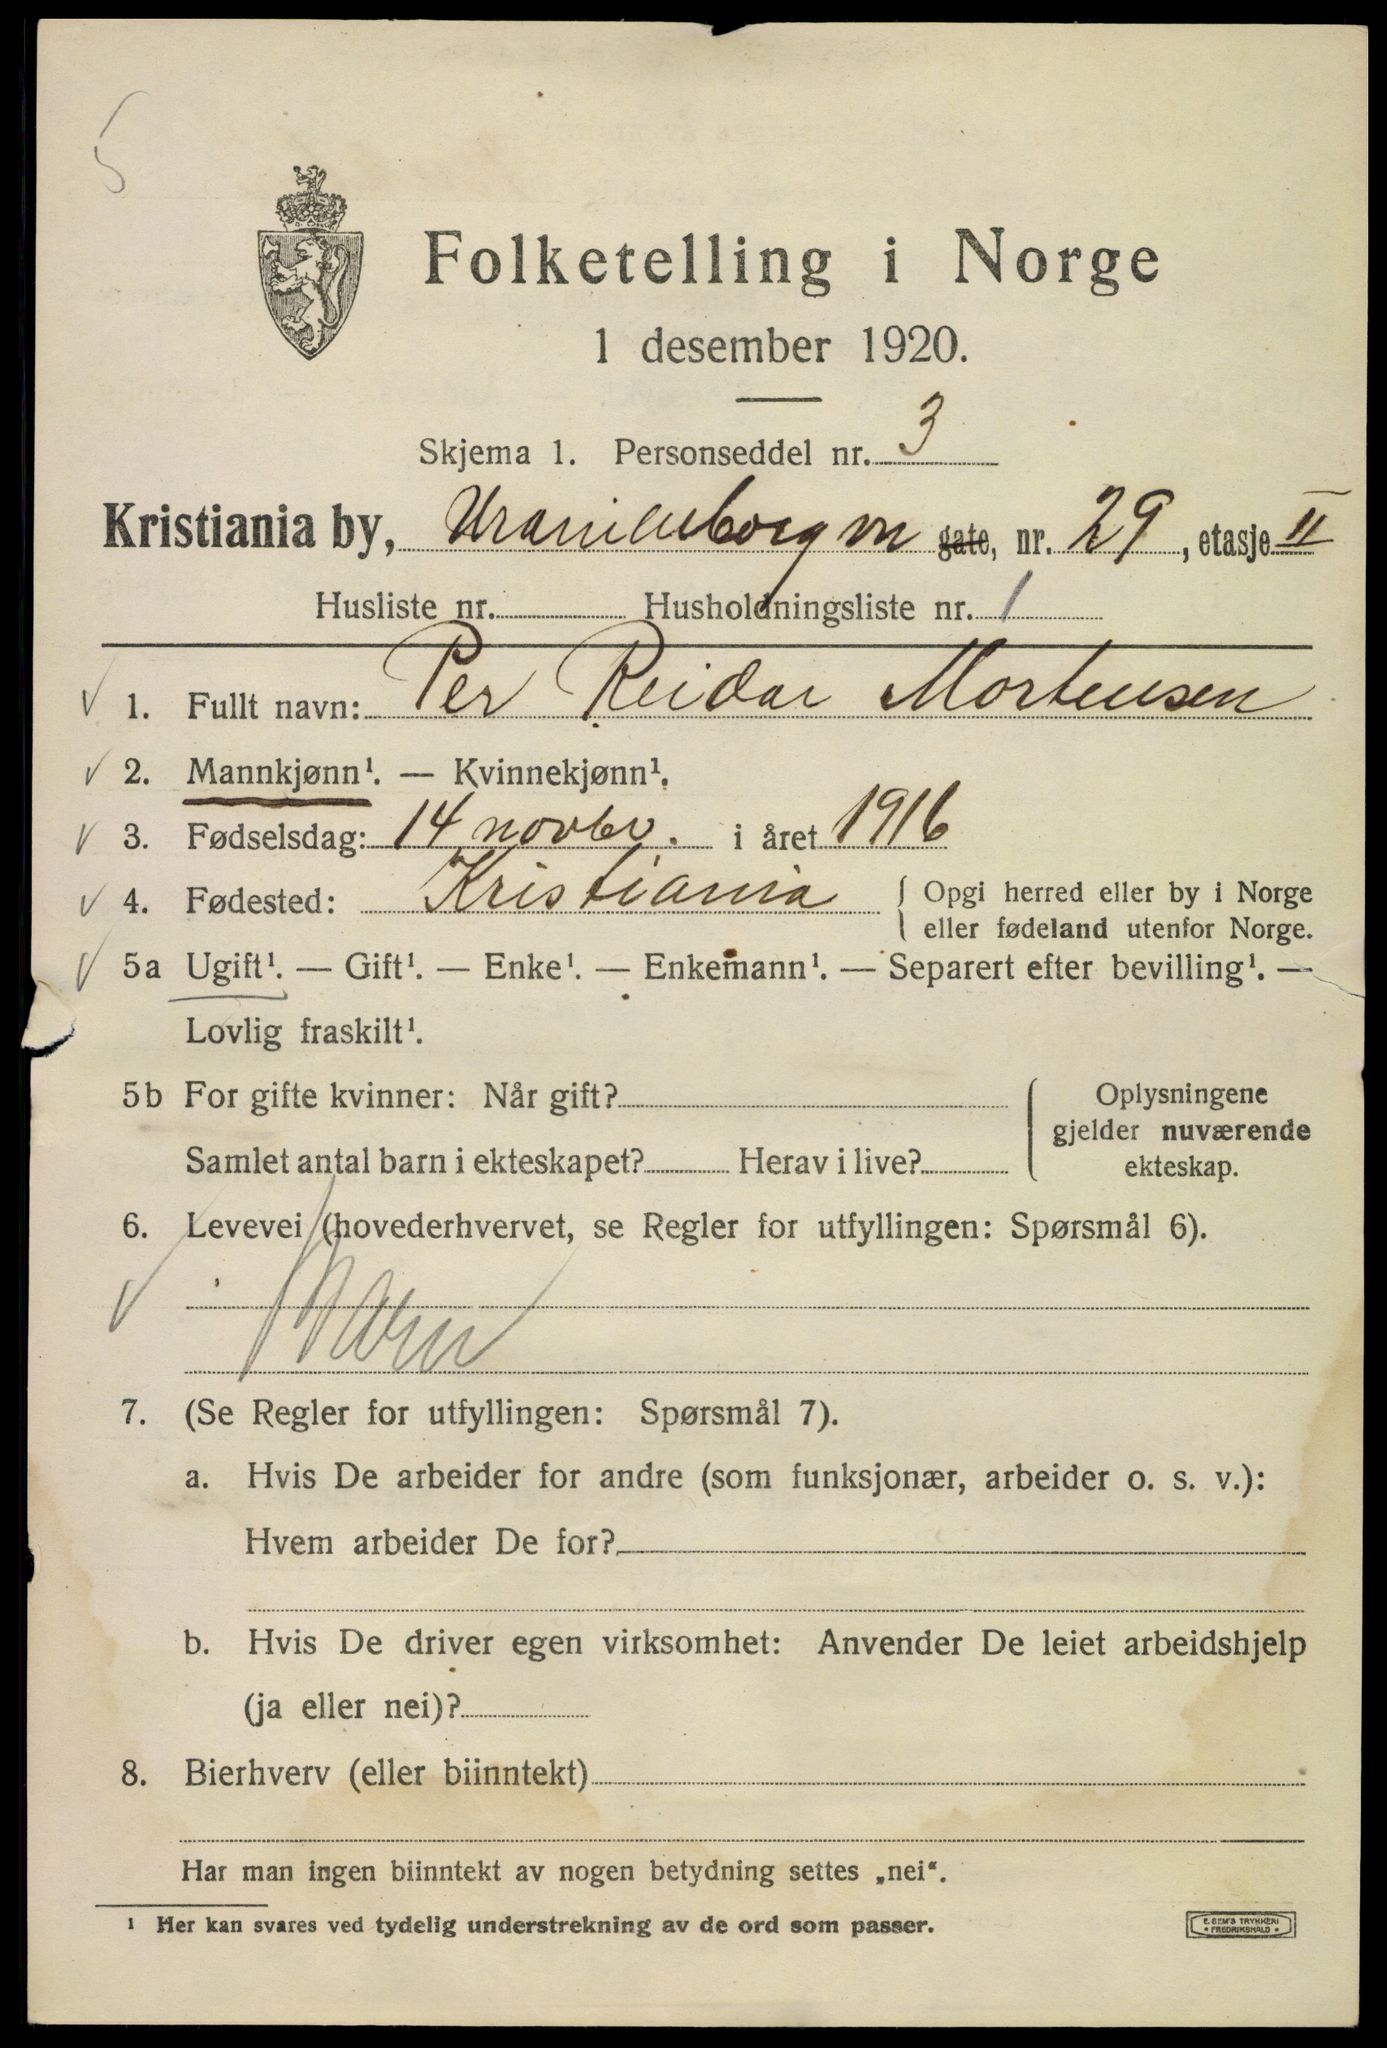 5
Folketelling i Norge
1 desember 1920.
Skjema 1. Personseddel nr. 3
Kristiania by, Uranienborgvn gate, nr. 29, etasje II
Husliste nr. Husholdningsliste nr. 1
1. Fullt navn: Per Reidar Mortensen
2. Mannkjønn¹. — Kvinnekjønn¹.
3. Fødselsdag: 14 novbr. i året 1916
4. Fødested: Kristiania { Opgi herred eller by i Norge
eller fødeland utenfor Norge.
5a Ugift¹. — Gift¹. — Enke¹. — Enkemann¹. — Separert efter bevilling¹. —
Lovlig fraskilt¹.
5b For gifte kvinner: Når gift? { Oplysningene
gjelder nuværende
Samlet antal barn i ekteskapet? Herav i live? ekteskap.
6. Levevei (hovederhvervet, se Regler for utfyllingen: Spørsmål 6).
Barn
7. (Se Regler for utfyllingen: Spørsmål 7).
a. Hvis De arbeider for andre (som funksjonær, arbeider o. s. v.):
Hvem arbeider De for?
b. Hvis De driver egen virksomhet: Anvender De leiet arbeidshjelp
(ja eller nei)?
8. Bierhverv (eller biinntekt)
Har man ingen biinntekt av nogen betydning settes „nei“.
¹ Her kan svares ved tydelig understrekning av de ord som passer.
E. SEM'S TRYKKERI
* FREDRIKSHALD *